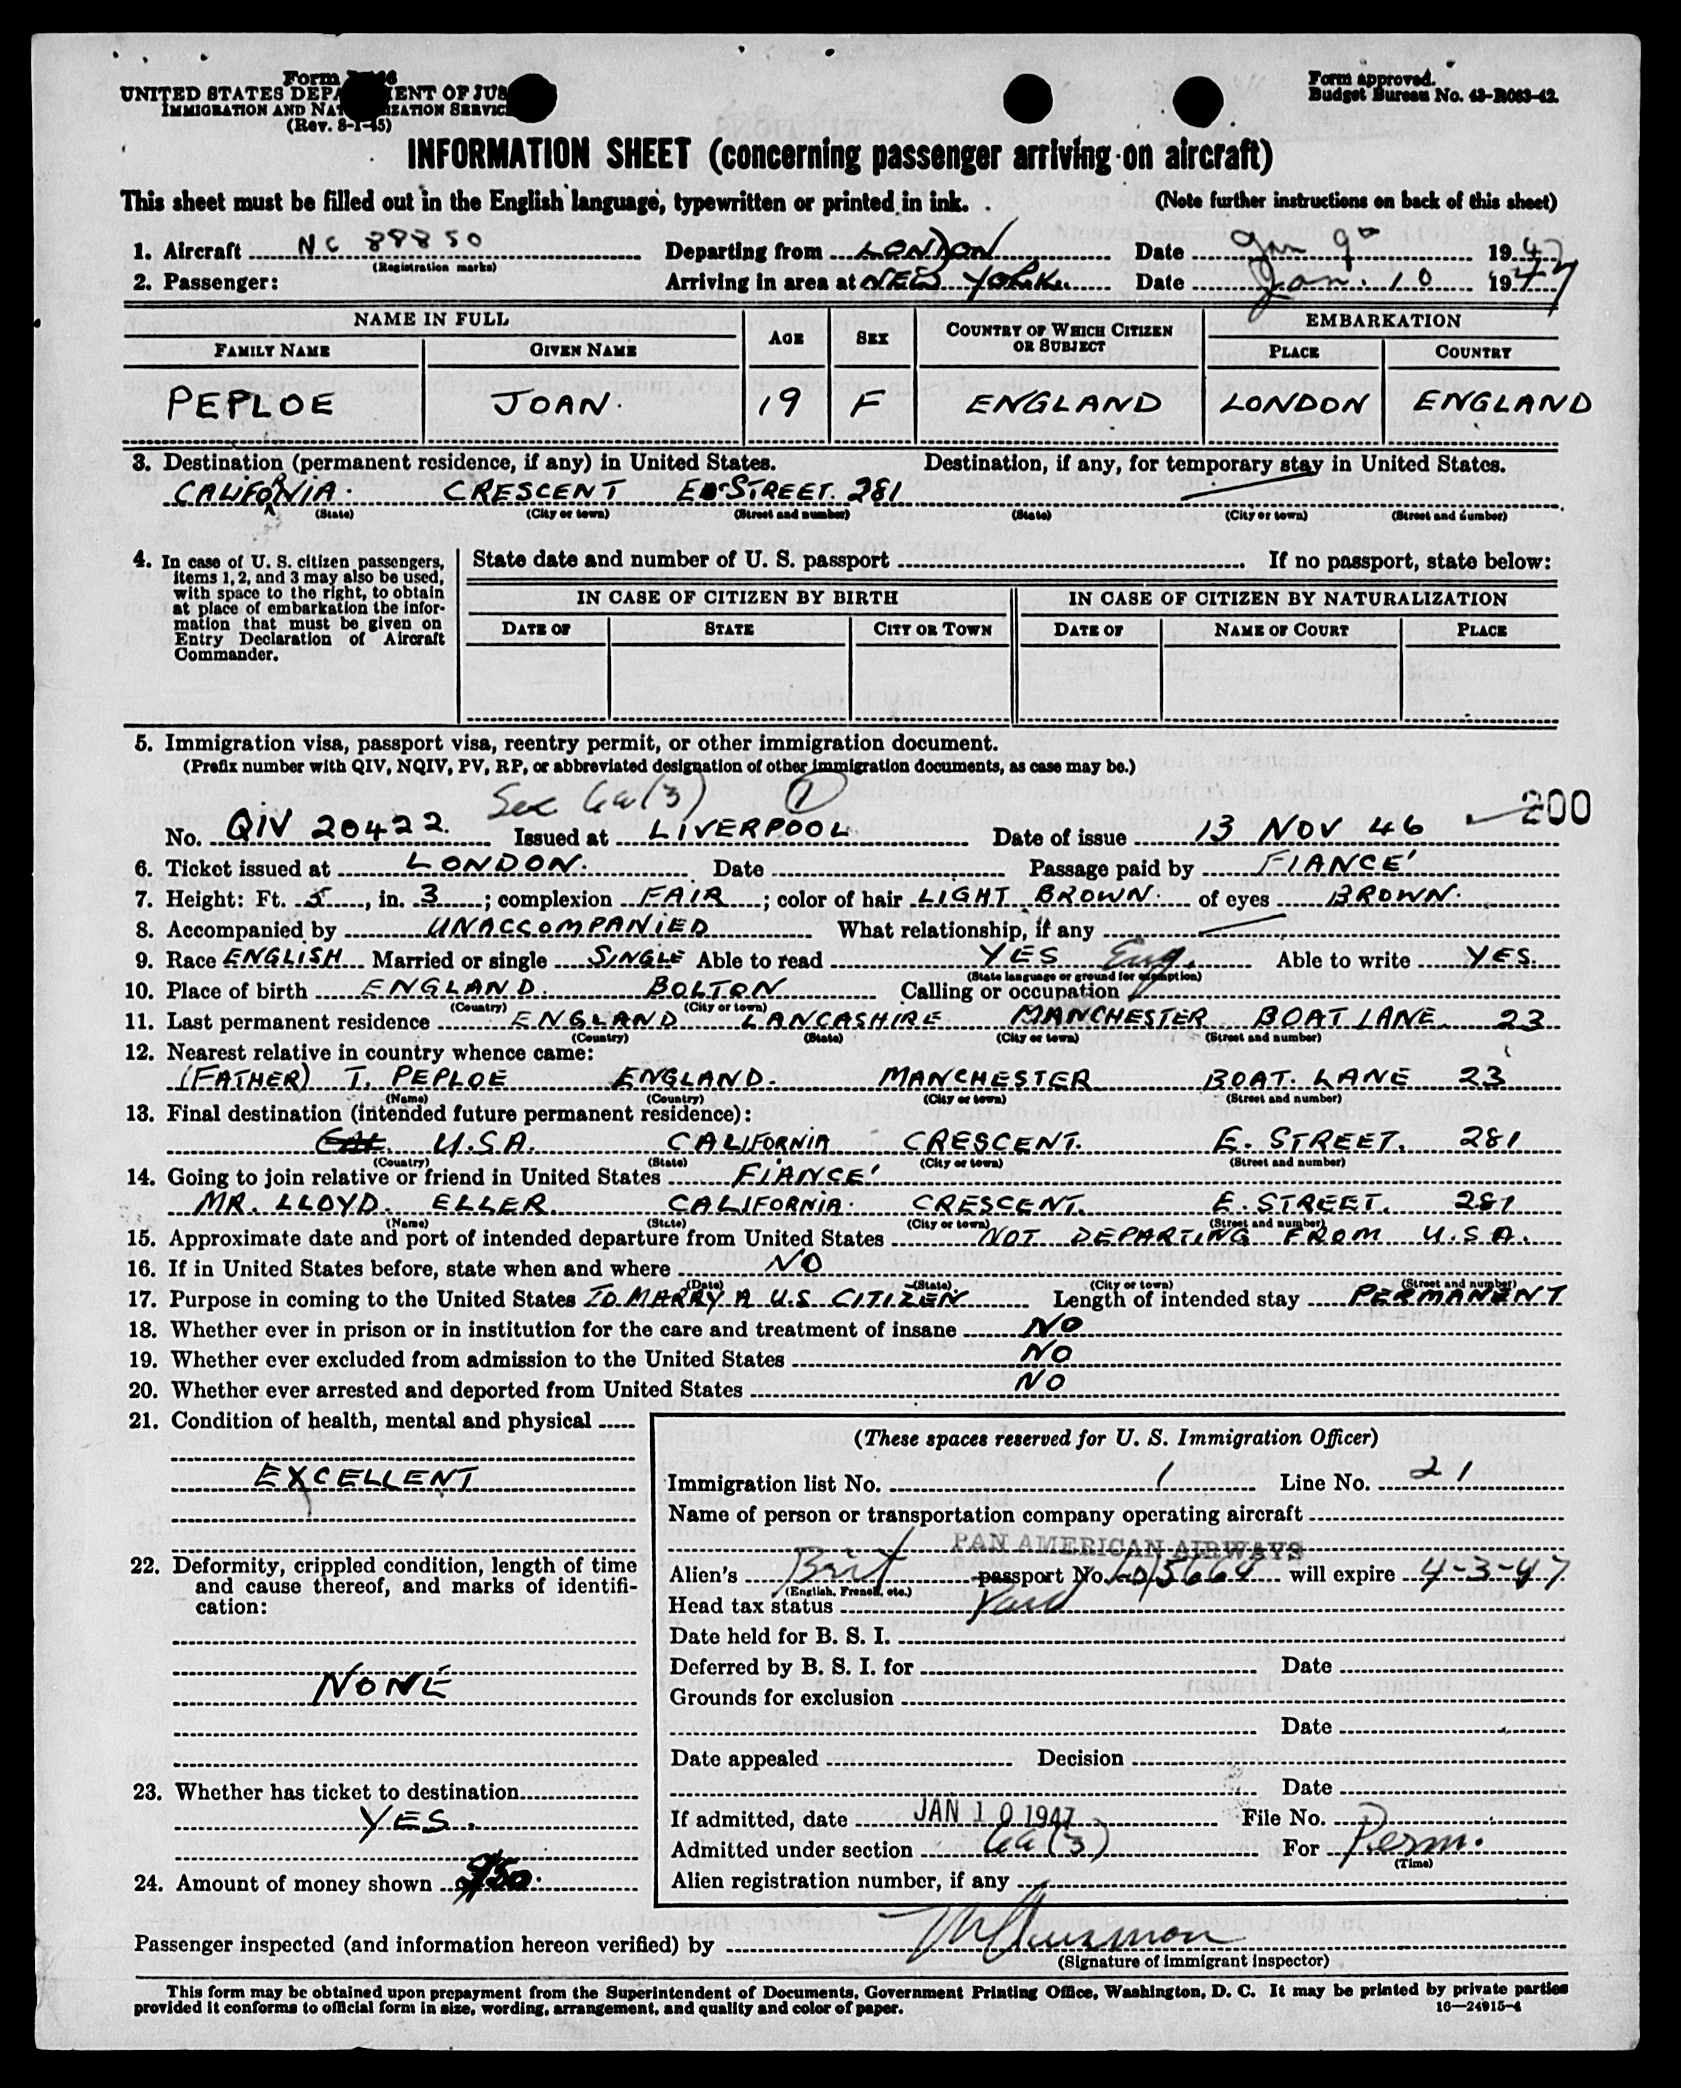 Form
UNITED STATES DEPA ENT OF JUS
IMMIGRATION AND NAT IZATION SERVIC
(Rev. 8-1-45)
Form approved.
Budget Bureau No. 43-R063-42.
INFORMATION SHEET (concerning passenger arriving on aircraft)
This sheet must be filled out in the English language, typewritten or printed in ink. (Note further instructions on back of this sheet)
1. Aircraft NC 88850 Departing from LONDON Date Jan 9 1947
(Registration marks)
2. Passenger: Arriving in area at NEW YORK. Date Jan. 10 1947
NAME IN FULL AGE SEX COUNTRY OF WHICH CITIZEN OR SUBJECT EMBARKATION
FAMILY NAME GIVEN NAME PLACE COUNTRY
PEPLOE JOAN. 19 F ENGLAND LONDON ENGLAND
3. Destination (permanent residence, if any) in United States. Destination, if any, for temporary stay in United States.
CALIFORNIA. CRESCENT E. STREET. 281
(State) (City or town) (Street and number) (State) (City or town) (Street and number)
4. In case of U. S. citizen passengers, items 1, 2, and 3 may also be used, with space to the right, to obtain at place of embarkation the information that must be given on Entry Declaration of Aircraft Commander.
State date and number of U. S. passport If no passport, state below:
IN CASE OF CITIZEN BY BIRTH IN CASE OF CITIZEN BY NATURALIZATION
DATE OF STATE CITY OR TOWN DATE OF NAME OF COURT PLACE
5. Immigration visa, passport visa, reentry permit, or other immigration document.
(Prefix number with QIV, NQIV, PV, RP, or abbreviated designation of other immigration documents, as case may be.)
Sec 6a(3) 1
200
No. QIV 20422. Issued at LIVERPOOL Date of issue 13 NOV 46
6. Ticket issued at LONDON. Date Passage paid by FIANCE'
7. Height: Ft. 5, in. 3; complexion FAIR; color of hair LIGHT BROWN. of eyes BROWN.
8. Accompanied by UNACCOMPANIED What relationship, if any
9. Race ENGLISH Married or single SINGLE Able to read YES Eng. Able to write YES.
(State language or ground for exemption)
10. Place of birth ENGLAND. BOLTON Calling or occupation
(Country) (City or town)
11. Last permanent residence ENGLAND LANCASHIRE MANCHESTER BOAT LANE 23
(Country) (State) (City or town) (Street and number)
12. Nearest relative in country whence came:
(FATHER) T. PEPLOE ENGLAND. MANCHESTER BOAT. LANE 23
(Name) (Country) (City or town) (Street and number)
13. Final destination (intended future permanent residence):
U.S.A. CALIFORNIA CRESCENT. E. STREET. 281
(Country) (State) (City or town) (Street and number)
14. Going to join relative or friend in United States FIANCE'
MR. LLOYD. ELLER. CALIFORNIA. CRESCENT. E. STREET. 281
(Name) (State) (City or town) (Street and number)
15. Approximate date and port of intended departure from United States NOT DEPARTING FROM U.S.A.
16. If in United States before, state when and where NO
(Date) (State) (City or town) (Street and number)
17. Purpose in coming to the United States TO MARRY A U.S CITIZEN Length of intended stay PERMANENT
18. Whether ever in prison or in institution for the care and treatment of insane NO
19. Whether ever excluded from admission to the United States NO
20. Whether ever arrested and deported from United States NO
21. Condition of health, mental and physical
EXCELLENT
22. Deformity, crippled condition, length of time and cause thereof, and marks of identification:
NONE
23. Whether has ticket to destination
YES.
24. Amount of money shown $50.
(These spaces reserved for U. S. Immigration Officer)
Immigration list No. 1 Line No. 21
Name of person or transportation company operating aircraft
PAN AMERICAN AIRWAYS
Alien's Brit passport No. will expire 4-3-47
(English, French, etc.)
Head tax status Paid
Date held for B. S. I.
Deferred by B. S. I. for Date
Grounds for exclusion
Date
Date appealed Decision
Date
If admitted, date JAN 10 1947 File No.
Admitted under section 6a(3) For Perm.
(Time)
Alien registration number, if any
Passenger inspected (and information hereon verified) by
(Signature of immigrant inspector)
This form may be obtained upon prepayment from the Superintendent of Documents, Government Printing Office, Washington, D. C. It may be printed by private parties
provided it conforms to official form in size, wording, arrangement, and quality and color of paper. 16—24915-4